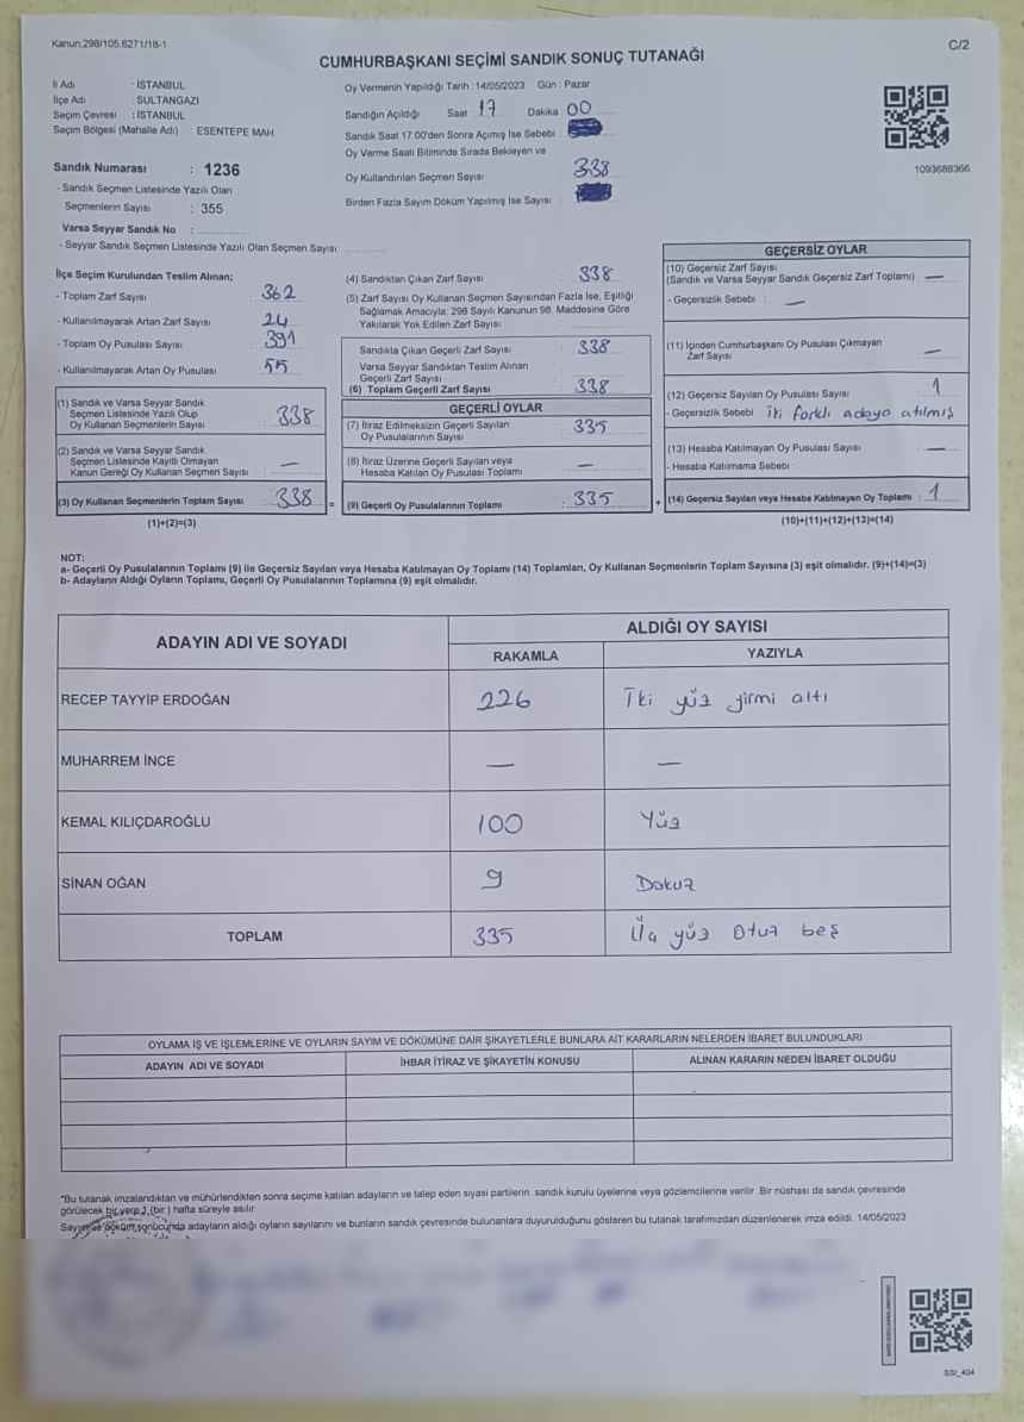 Kanun:298/105.6271/18-1
C/2
CUMHURBAŞKANI SEÇİMİ SANDIK SONUÇ TUTANAĞI
İl Adı : İSTANBUL
İlçe Adı : SULTANGAZİ
Seçim Çevresi : İSTANBUL
Seçim Bölgesi (Mahalle Adı) : ESENTEPE MAH.
Sandık Numarası : 1236
- Sandık Seçmen Listesinde Yazılı Olan
Seçmenlerin Sayısı : 355
Varsa Seyyar Sandık No :
- Seyyar Sandık Seçmen Listesinde Yazılı Olan Seçmen Sayısı:
Oy Vermenin Yapıldığı Tarih : 14/05/2023 Gün : Pazar
Sandığın Açıldığı Saat 17 Dakika 00
Sandık Saat 17:00'den Sonra Açımış İse Sebebi :
Oy Verme Saati Bitiminde Sırada Bekleyen ve
Oy Kullandırılan Seçmen Sayısı 338
Birden Fazla Sayım Döküm Yapılmış İse Sayısı
1093688366
İlçe Seçim Kurulundan Teslim Alınan;
- Toplam Zarf Sayısı 362
- Kullanılmayarak Artan Zarf Sayısı 24
- Toplam Oy Pusulası Sayısı 391
- Kullanılmayarak Artan Oy Pusulası 55
(1) Sandık ve Varsa Seyyar Sandık
Seçmen Listesinde Yazılı Olup
Oy Kullanan Seçmenlerin Sayısı 338
(2) Sandık ve Varsa Seyyar Sandık
Seçmen Listesinde Kayıtlı Olmayan
Kanun Gereği Oy Kullanan Seçmen Sayısı —
(3) Oy Kullanan Seçmenlerin Toplam Sayısı 338 =
(1)+(2)=(3)
(4) Sandıktan Çıkan Zarf Sayısı 338
(5) Zarf Sayısı Oy Kullanan Seçmen Sayısından Fazla İse, Eşitliği
Sağlamak Amacıyla; 298 Sayılı Kanunun 98. Maddesine Göre
Yakılarak Yok Edilen Zarf Sayısı :
Sandıkta Çıkan Geçerli Zarf Sayısı : 338
Varsa Seyyar Sandıktan Teslim Alınan
Geçerli Zarf Sayısı
(6) Toplam Geçerli Zarf Sayısı : 338
GEÇERLİ OYLAR
(7) İtiraz Edilmeksizin Geçerli Sayılan
Oy Pusulalarının Sayısı 335
(8) İtiraz Üzerine Geçerli Sayılan veya
Hesaba Katılan Oy Pusulası Toplamı —
(9) Geçerli Oy Pusulalarının Toplamı : 335 +
GEÇERSİZ OYLAR
(10) Geçersiz Zarf Sayısı
(Sandık ve Varsa Seyyar Sandık Geçersiz Zarf Toplamı) —
- Geçersizlik Sebebi : —
(11) İçinden Cumhurbaşkanı Oy Pusulası Çıkmayan
Zarf Sayısı —
(12) Geçersiz Sayılan Oy Pusulası Sayısı 1
- Geçersizlik Sebebi iki farklı adaya atılmış
(13) Hesaba Katılmayan Oy Pusulası Sayısı —
- Hesaba Katılmama Sebebi
(14) Geçersiz Sayılan veya Hesaba Katılmayan Oy Toplamı : 1
(10)+(11)+(12)+(13)=(14)
NOT:
a- Geçerli Oy Pusulalarının Toplamı (9) ile Geçersiz Sayılan veya Hesaba Katılmayan Oy Toplamı (14) Toplamları, Oy Kullanan Seçmenlerin Toplam Sayısına (3) eşit olmalıdır. (9)+(14)=(3)
b- Adayların Aldığı Oyların Toplamı, Geçerli Oy Pusulalarının Toplamına (9) eşit olmalıdır.
ADAYIN ADI VE SOYADI
ALDIĞI OY SAYISI
RAKAMLA YAZIYLA
RECEP TAYYİP ERDOĞAN 226 İki yüz yirmi altı
MUHARREM İNCE — —
KEMAL KILIÇDAROĞLU 100 Yüz
SİNAN OĞAN 9 Dokuz
TOPLAM 335 Üç yüz Otuz beş
OYLAMA İŞ VE İŞLEMLERİNE VE OYLARIN SAYIM VE DÖKÜMÜNE DAİR ŞİKAYETLERLE BUNLARA AİT KARARLARIN NELERDEN İBARET BULUNDUKLARI
ADAYIN ADI VE SOYADI İHBAR İTİRAZ VE ŞİKAYETİN KONUSU ALINAN KARARIN NEDEN İBARET OLDUĞU
*Bu tutanak imzalandıktan ve mühürlendikten sonra seçime katılan adayların ve talep eden siyasi partilerin sandık kurulu üyelerine veya gözlemcilerine verilir. Bir nüshası da sandık çevresinde
görülecek bir yere 1 (bir) hafta süreyle asılır.
Sayım ve döküm sonucunda adayların aldığı oyların sayılarını ve bunların sandık çevresinde bulunanlara duyurulduğunu gösteren bu tutanak tarafımızdan düzenlenerek imza edildi. 14/05/2023